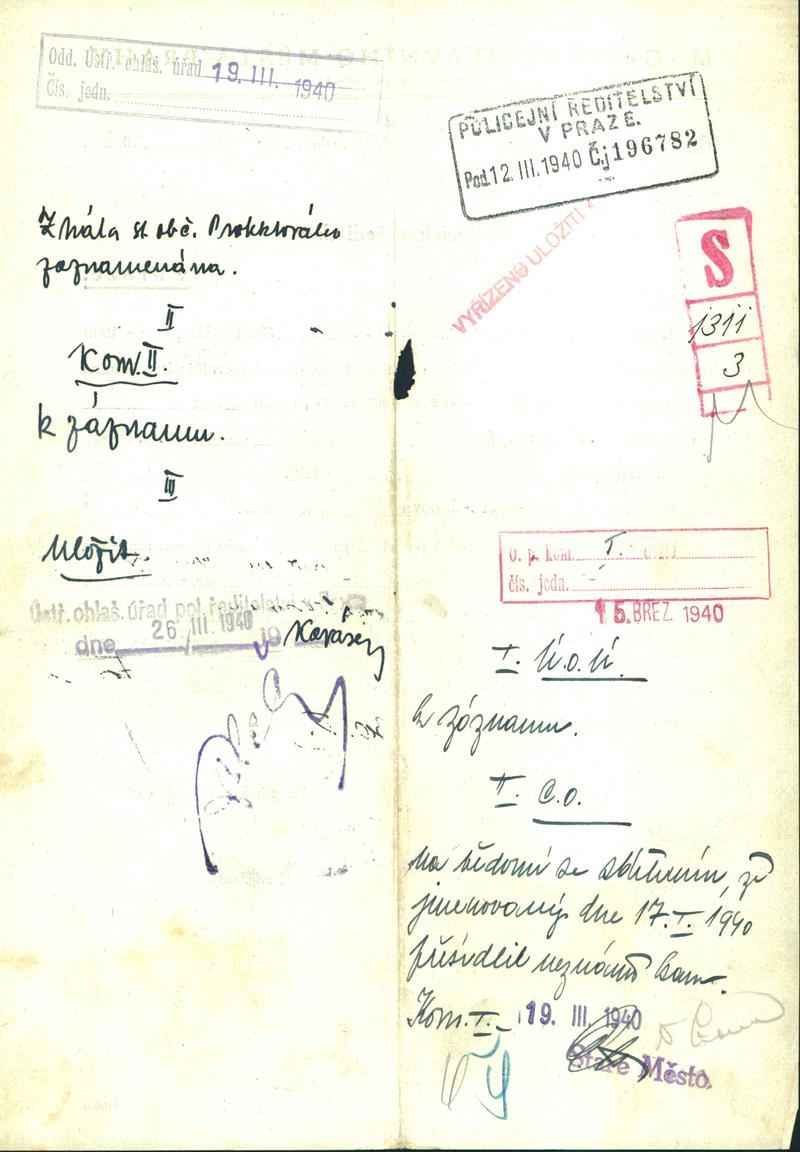 Odd. Ústř. ohlaš. úřad 19. III. 1940
Čís. jedn.
st. obč. Protektorátu
zaznamenána.
II
Kom. II.
k záznamu.
III
Uložit.
Ústř. ohlaš. úřad pol. ředitelství v
dne 26 III. 1940 19
POLICEJNÍ ŘEDITELSTVÍ
V PRAZE.
Pod. 12. III. 1940 Čj 196782
VYŘÍZENO ULOŽITI
S
1311
3
O. p. kom. I.
čís. jedn.
15. BŘEZ. 1940
I. Ú.o.ú.
k záznamu.
II. C.o.
na vědomí se sdělením, že
jmenovaný dne 17. I. 1940
přesídlil neznámo kam.
Kom. I. 19. III. 1940
Staré Město.